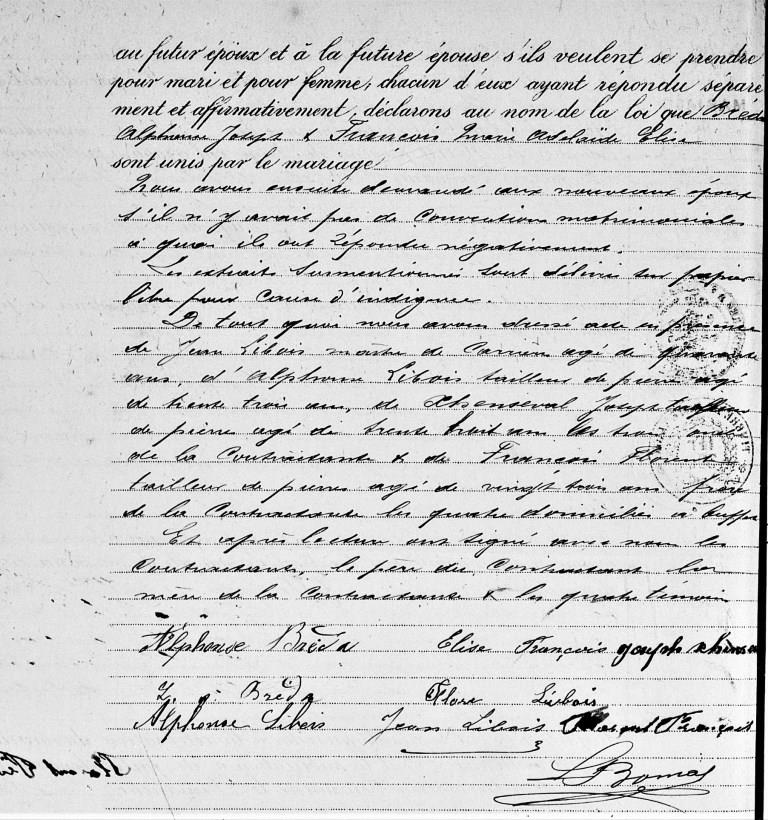 au futur époux et à la future épouse s'ils veulent se prendre
pour mari et pour femme, chacun d'eux ayant répondu séparé
ment et affirmativement, déclarons au nom de la loi que Bréda
Alphonse Joseph & François Marie Adelaïde Elise
sont unis par le mariage
Nous avons ensuite demandé aux nouveaux époux
s'il n'y avait pas de convention matrimoniales
à quoi ils ont répondu négativement.
Les extraits susmentionnés sont délivrés sur papier
libre pour cause d'indigence.
De tout quoi nous avons dressé acte en présence
de Jean Libois maître de carrière agé de quarante
ans, d'Alphonse Libois tailleur de pierre agé
de trente trois ans, de Joseph tailleur
de pierre agé de trente huit ans les trois
de la contractante & de François Florent
tailleur de pierres agé de vingt trois ans frère
de la contractante les quatre domiciliés à
Et après lecture ont signé avec nous les
contractants, le père du contractant la
mère de la contractante & les quatre témoins
Alphonse Bréda Elise François joseph
Bréda Flore Libois
Alphonse Libois Jean Libois Florent François